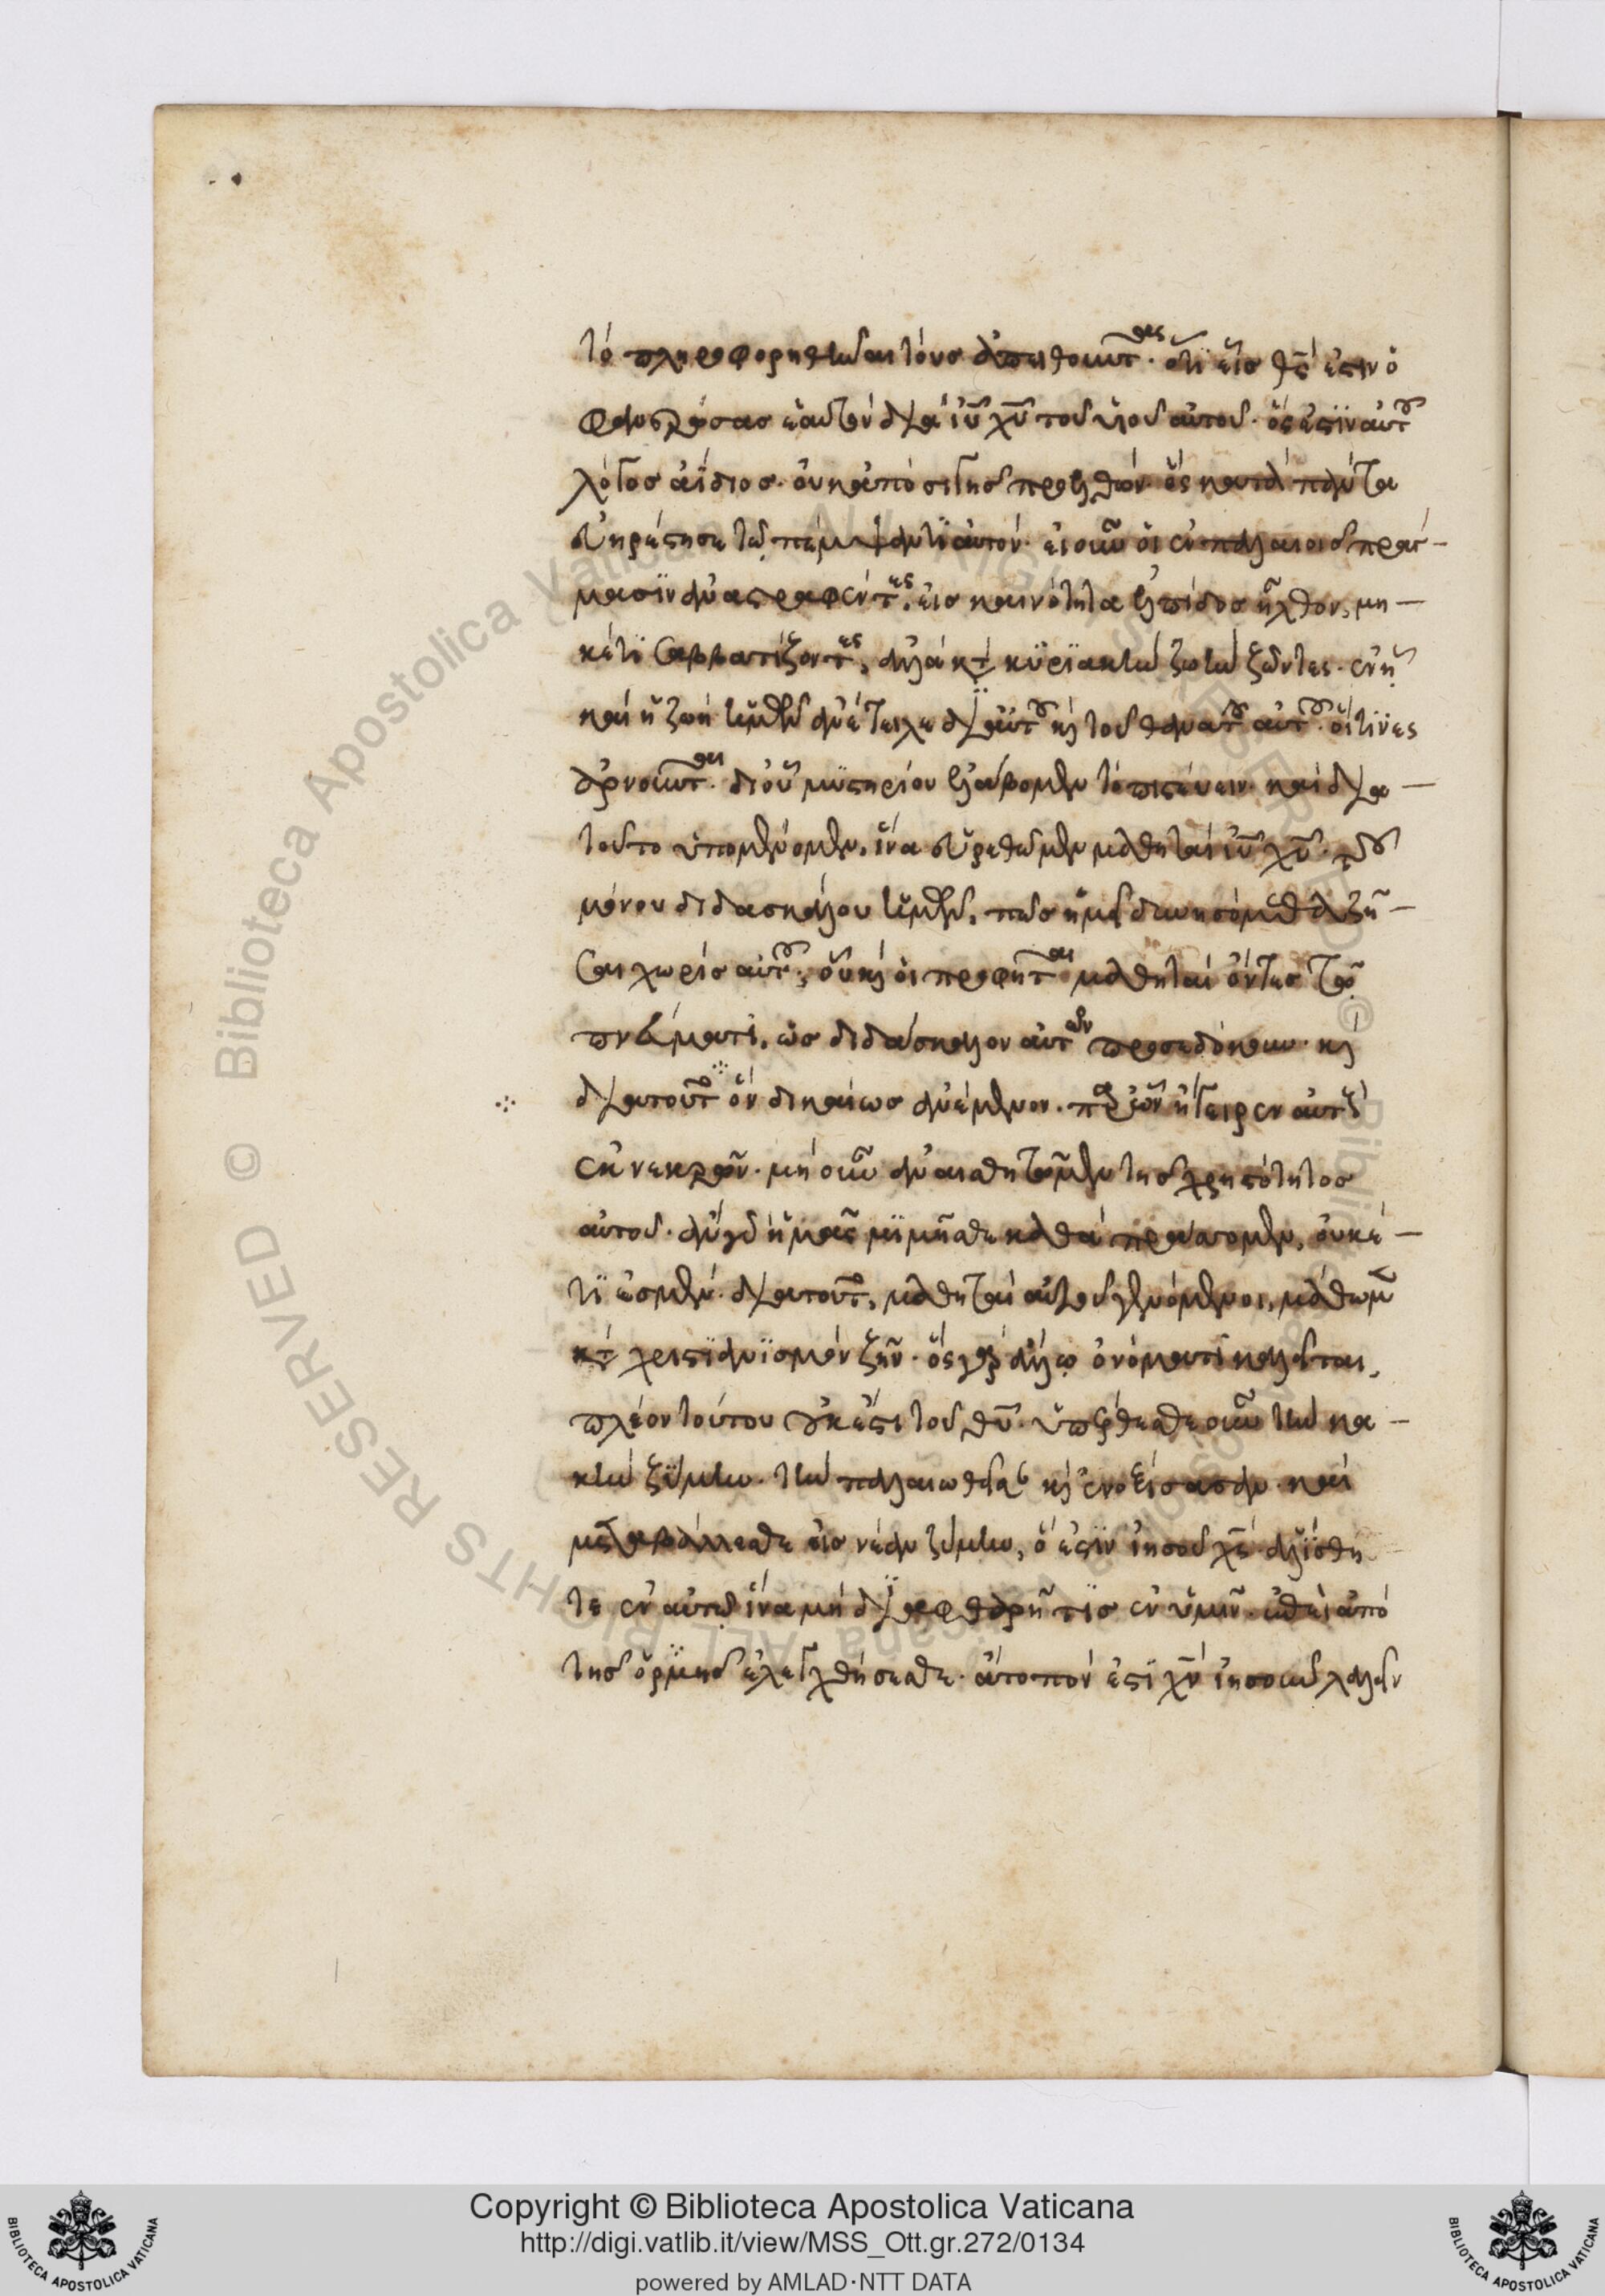 τὸ πληροφορηθῆναι τοὺς ἀπειθοῦντας· ὅτι εἷς θς ἐστιν ὁ
φανερώσας ἑαυτὸν διὰ ιυ χυ τοῦ υἱοῦ αὐτοῦ· ὅς ἐστιν αὐτοῦ
λόγος ἀΐδιος· οὐκ ἀπὸ σιγῆς προελθών· ὃς κατὰ πάντα
εὐηρέστησε τῷ πέμψαντι αὐτόν· εἰ οὖν οἱ ἐν παλαιοῖς πράγ-
μασιν ἀναστραφέντες, εἰς καινότητα ἐλπίδος ἦλθον, μη-
κέτι σαββατίζοντες, ἀλλὰ κατὰ κυριακὴν ζωὴν ζῶντες· ἐν ᾗ
καὶ ἡ ζωὴ ἡμῶν ἀνέτειλε δι' αὐτοῦ καὶ τοῦ θανάτου αὐτοῦ· οἵτινες
ἀρνοῦνται· δι' οὗ μυστηρίου ἐλάβομεν τὸ πιστεύειν· καὶ διὰ
τοῦτο ὑπομένομεν, ἵνα εὑρεθῶμεν μαθηταὶ ιυ χυ· τοῦ
μόνου διδασκάλου ἡμῶν, πῶς ἡμεῖς δυνησόμεθα ζῆ-
σαι χωρὶς αὐτοῦ; οὗ καὶ οἱ προφῆται μαθηταὶ ὄντες τῷ
πνεύματι, ὡς διδάσκαλον αὐτὸν προσεδόκουν· καὶ
διὰ τοῦτο ὃν δικαίως ἀνέμενον. παρὼν ἤγειρεν αὐτοὺς
ἐκ νεκρῶν· μὴ οὖν ἀναισθητῶμεν τῆς χρηστότητος
αὐτοῦ· ἂν γὰρ ἡμᾶς μιμήσεται καθὰ πράσσομεν, οὐκέ-
τι ἐσμέν· διὰ τοῦτο, μαθηταὶ αὐτοῦ γενόμενοι, μάθωμεν
κατὰ χριστιανισμὸν ζῆν· ὃς γὰρ ἄλλῳ ὀνόματι καλεῖται,
πλέον τούτου οὐκ ἔστι τοῦ θυ· ὑπέρθεσθε οὖν τὴν κα-
κὴν ζύμην· τὴν παλαιωθεῖσαν καὶ ἐνοξίσασαν· καὶ
μεταβάλλεσθε εἰς νέαν ζύμην, ὅ ἐστιν ἰησοῦς χς· ἁλίσθη
τε ἐν αὐτῷ ἵνα μὴ διαφθαρῇ τις ἐν ὑμῖν· ἐπεὶ ἀπὸ
τῆς ὀρμῆς ἐλεγχθήσεσθε· ἄτοπόν ἐστι χν ἰησοῦν λαλεῖν
Copyright © Biblioteca Apostolica Vaticana
http://digi.vatlib.it/view/MSS_Ott.gr.272/0134
powered by AMLAD·NTT DATA
BIBLIOTECA APOSTOLICA VATICANA
BIBLIOTECA APOSTOLICA VATICANA
© Biblioteca Apostolica Vaticana ALL RIGHTS RESERVED